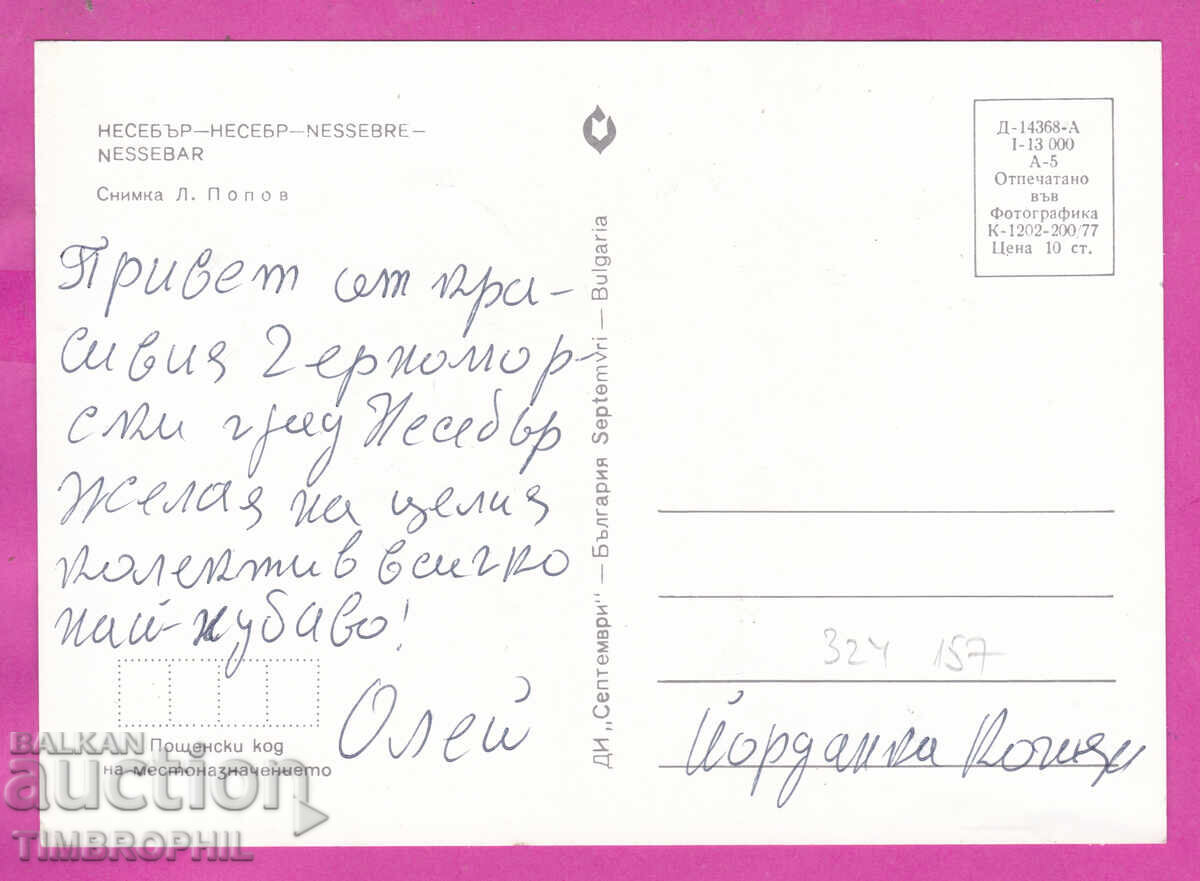 НЕСЕБЪР—НЕСЕБР—NESSEBRE—
NESSEBAR
Снимка Л. Попов
Привет от кра-
сивия Черномор-
ски град Несебър
Желая на целия
колектив всичко
най-хубаво!
Олей
Пощенски код
на местоназначението
ДИ „Септември" — България Septemvri — Bulgaria
Д-14368-А
I-13 000
А-5
Отпечатано
във
Фотографика
К-1202-200/77
Цена 10 ст.
324 157
Йорданка
BALKAN
auction
TIMBROPHIL